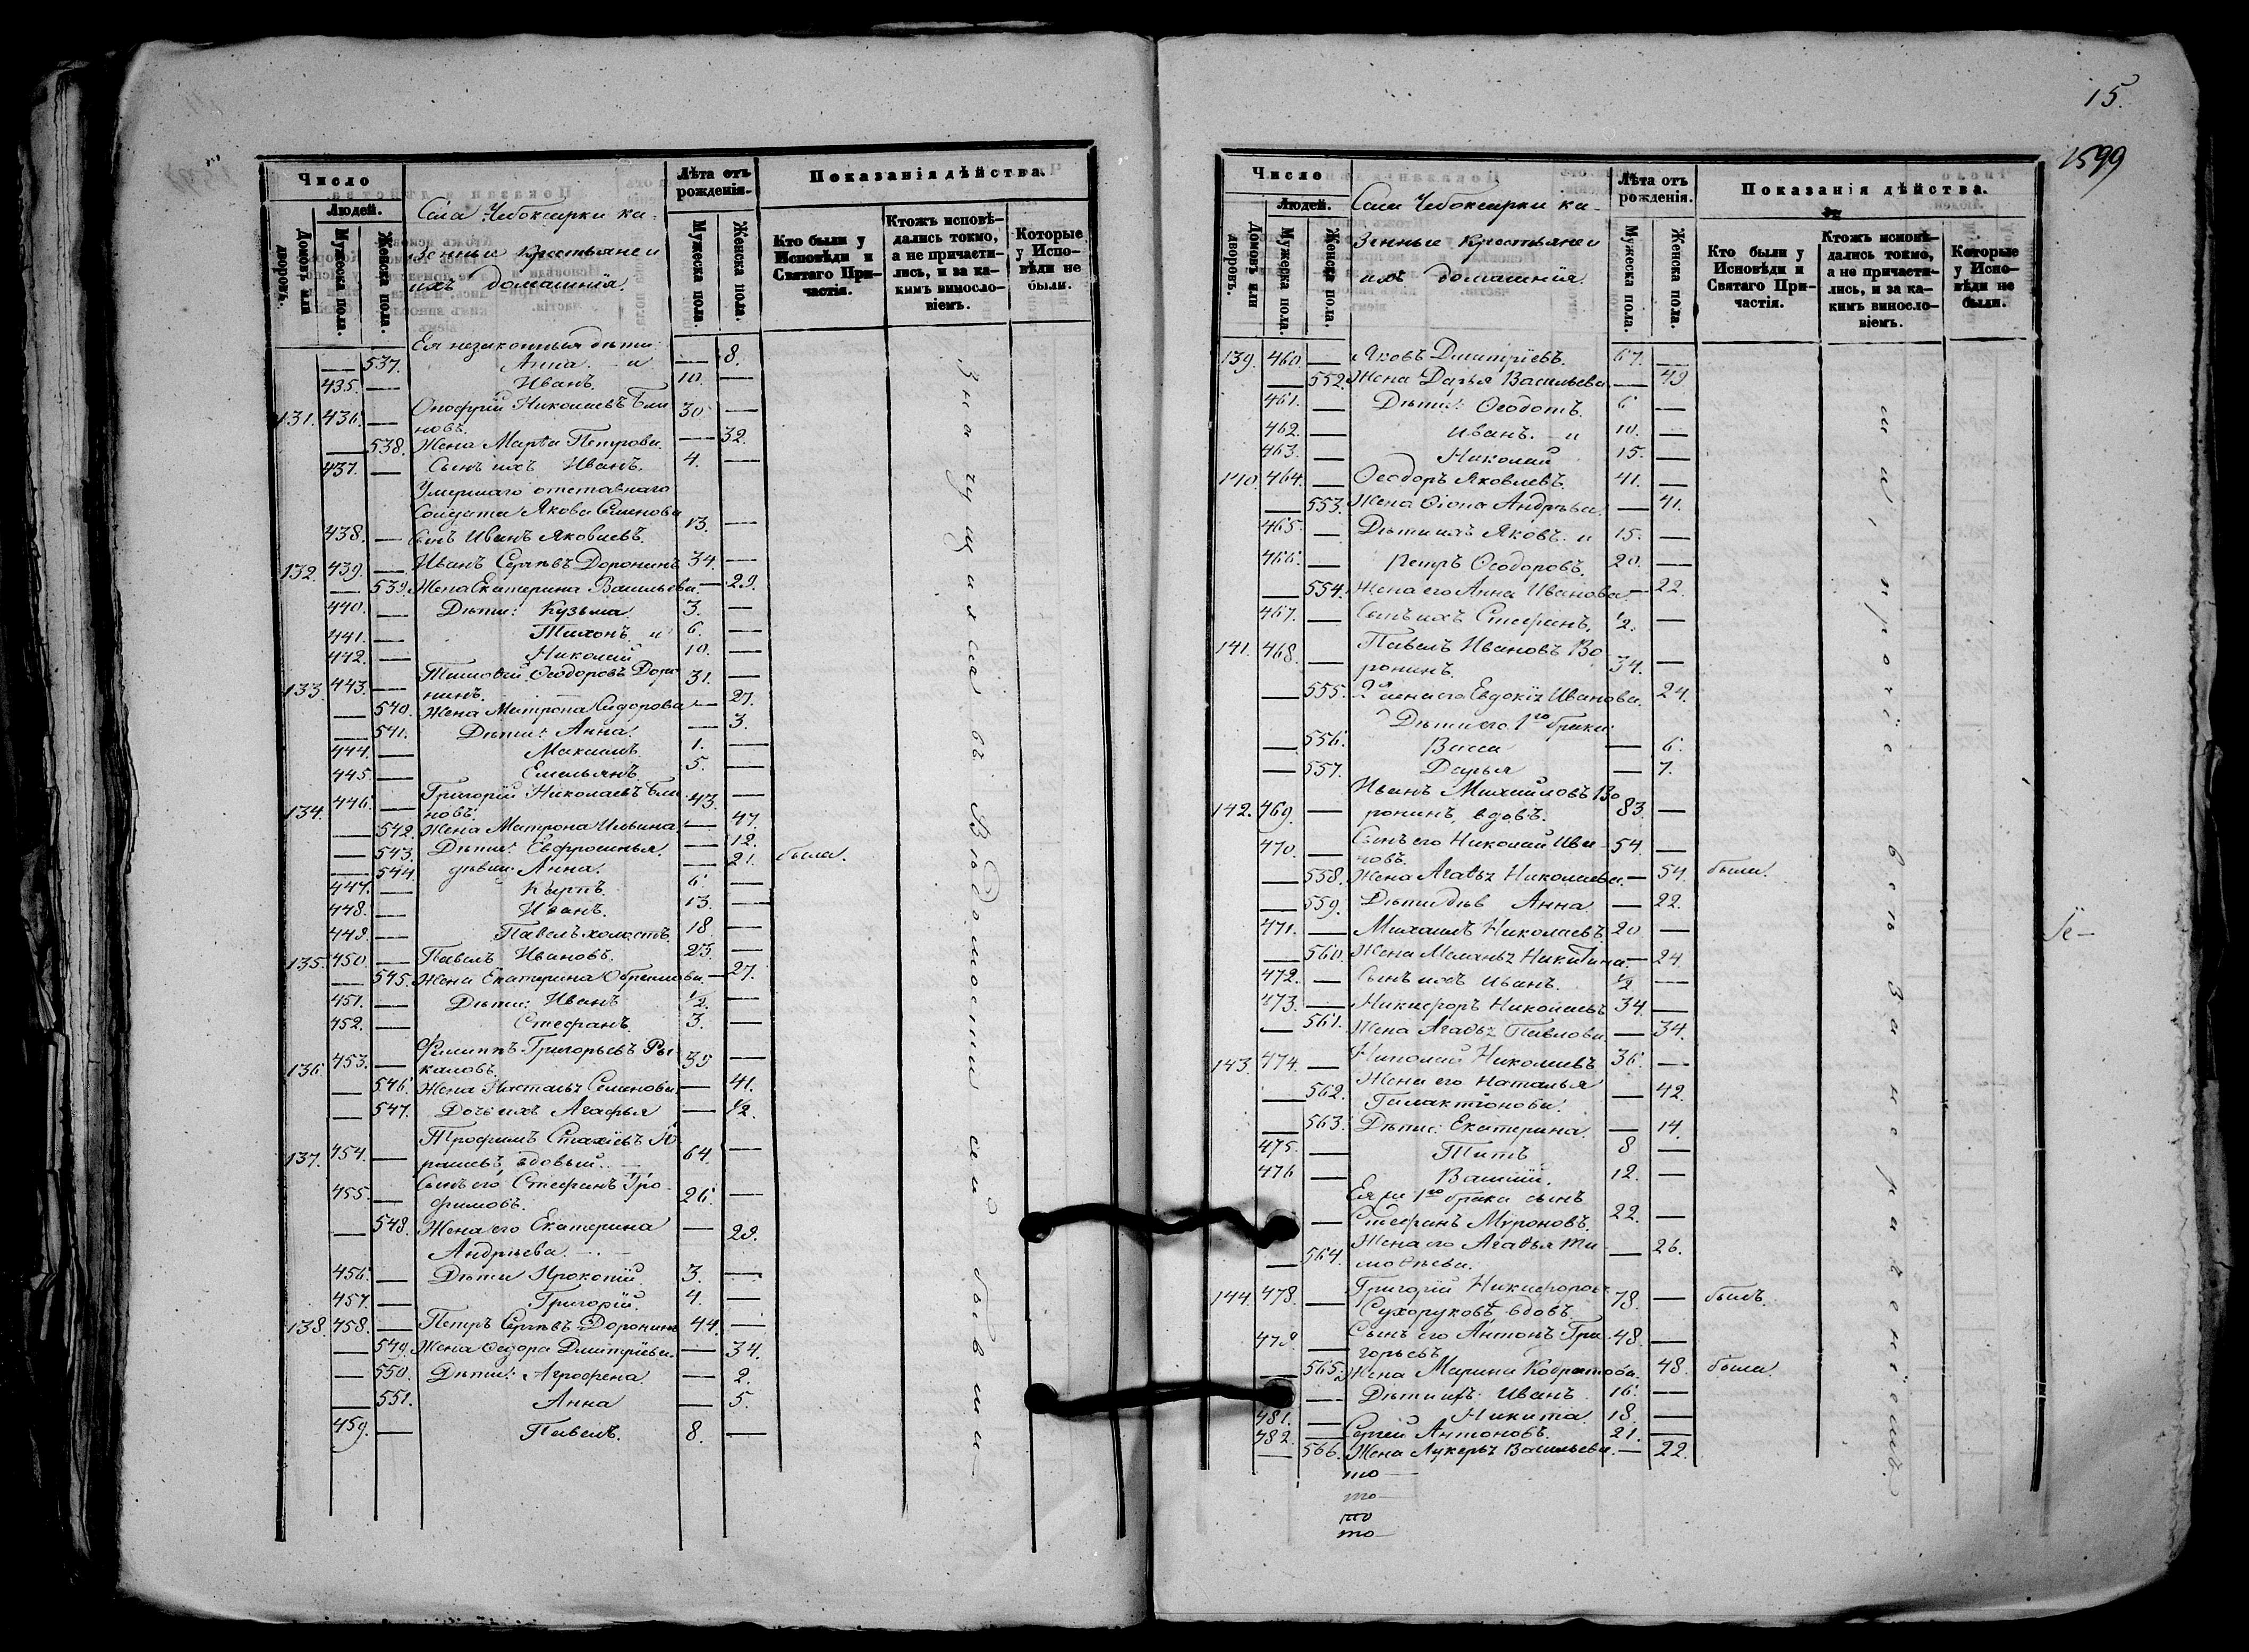 Число
Людей.
Домовъ или дворовъ.
Мужеска пола.
Женска пола.
Села Чебоксарки ка-
зенные крестьяне и
ихъ домашнія.
Лѣта отъ рожденія.
Мужеска пола.
Женска пола.
Показанія дѣйства.
Кто были у Исповѣди и Святаго При-частія.
Ктожъ исповѣ-дались токмо, а не причасти-лись, и за ка-кимъ винносло-віемъ.
Которые у Испо-вѣди не были.
Ея незаконныя дѣти:
— 537. Анна. — и — 8.
435. — Иванъ. 10. —
131. 436. — Онофрій Николаевъ Бли 30 —
новъ.
— 538. Жена Марѳа Петрова. — 32.
437. — Сынъ ихъ Иванъ. 4. —
Умершаго отставнаго
Солдата Якова Семенова
438. — сынъ Иванъ Яковлевъ. 13. —
132. 439. — Иванъ Сергѣевъ Доронинъ 34. —
— 539. Жена Екатерина Васильева — 29.
440. — Дѣти: Кузьма 3. —
441. — Тихонъ и 6. —
442. — Николай 10. —
133 443. — Тимоѳей Ѳеодоровъ Доро 31. —
нинъ.
— 540. Жена Матрона Сидорова — 27.
— 541. Дѣти: Анна. — 3.
444. — Максимъ 1. —
445. — Емельянъ. 5. —
134. 446. — Григорій Николаевъ Бли 43. —
новъ.
— 542. Жена Матрона Ильина. — 47.
— 543. Дѣти: Евфросинья. — 12.
— 544. дѣвица Анна. — 21. была.
447. — Карпъ 6 —
448. — Иванъ. 13. —
449. — Павелъ холостъ. 18. —
135. 450. — Павелъ Ивановъ. 23. —
— 545. Жена Екатерина Ефремова. — 27.
451. — Дѣти: Иванъ 1/2. —
452. — Стефанъ. 3. —
136 453. — Филиппъ Григорьевъ Ры 39 —
каловъ.
— 546 Жена Настасья Семенова. — 41.
— 547. Дочь ихъ Агафья — 1/2.
137. 454. — Трофимъ Стахіевъ 64. —
вдовый.
455. — Сынъ его Стефанъ Тро- 26 —
фимовъ.
— 548. Жена его Екатерина — 29.
Андріева. —
456. — Дѣти Прокопій 3. —
457. — Григорій. 4. —
138. 458. — Петръ Сергѣевъ Доронинъ 44. —
— 549. Жена Ѳедора Дмитріева. — 34.
— 550. Дѣти: Агрофена — 2.
— 551. Анна — 5.
459. — Павелъ. 8. —
Значущияся въ Вѣдомости сей бывши-
15.
1599
Число
Людей.
Домовъ или дворовъ.
Мужеска пола.
Женска пола.
Села Чебоксарки ка-
зенные крестьяне и
ихъ домашнія.
Лѣта отъ рожденія.
Мужеска пола.
Женска пола.
Показанія дѣйства.
Кто были у Исповѣди и Святаго При-частія.
Ктожъ исповѣ-дались токмо, а не причасти-лись, и за ка-кимъ винносло-віемъ.
Которые у Испо-вѣди не были.
139. 460. — Яковъ Дмитріевъ. 67. —
— 552. Жена Дарья Васильева — 49
461. — Дѣти: Ѳеодотъ. 6 —
462. — Иванъ. — и 10. —
463. — Николай 15. —
140. 464. — Ѳеодоръ Яковлевъ. 41. —
— 553. Жена Ѳіона Андрѣева. — 41.
465. — Дѣти ихъ Яковъ и 15. —
466. — Петръ Ѳеодоровъ. 20. —
— 554. Жена его Анна Иванова. — 22.
467. — Сынъ ихъ Стефанъ. 1/2. —
141. 468. — Павелъ Ивановъ Во 34. —
ронинъ.
— 555. 2я жена его Евдокія Иванова. — 24.
Дѣти его 1го брака:
— 556. Васса — 6.
— 557. Дарья — 7.
142. 469. — Иванъ Михайловъ Во 83. —
ронинъ, вдовъ.
470. — Сынъ его Николай Ива- 54. —
новъ.
— 558. Жена Агаѳья Николаева. — 54. была.
— 559. Дѣти дѣв Анна — 22.
471. — Михаилъ Николаевъ. 20 —
— 560. Жена Меланья Никитина. — 24.
472. — Сынъ ихъ Иванъ. 1/2 —
473. — Никифоръ Николаевъ 34. —
— 561. Жена Агаѳья Павлова. — 34.
143. 474. — Николай Николаевъ 36. —
— 562. Жена его Наталья — 42.
Галактіонова.
— 563. Дѣти: Екатерина. — 14.
475. — Титъ 8 —
476 — Василій. 12. —
Ея же 1го брака сынъ
— Стефанъ Мѵроновъ. 22. —
— 564. Жена его Агаѳья Ти- — 26.
моѳеева.
144. 478. — Григорій Никифоровъ 78. — былъ.
Сухоруковъ, вдовъ.
479 — Сынъ его Антонъ Гри- 48. —
горьевъ
— 565. Жена Марина Кодратова. — 48. была.
— Дѣти ихъ Иванъ 16. —
481. — Никита. 18. —
482. — Сергей Антоновъ. 21. —
— 566. Жена Лукерья Васильева. — 22.
то —
то —
то
то —
ми, а прочіе вси за нераченіемъ.